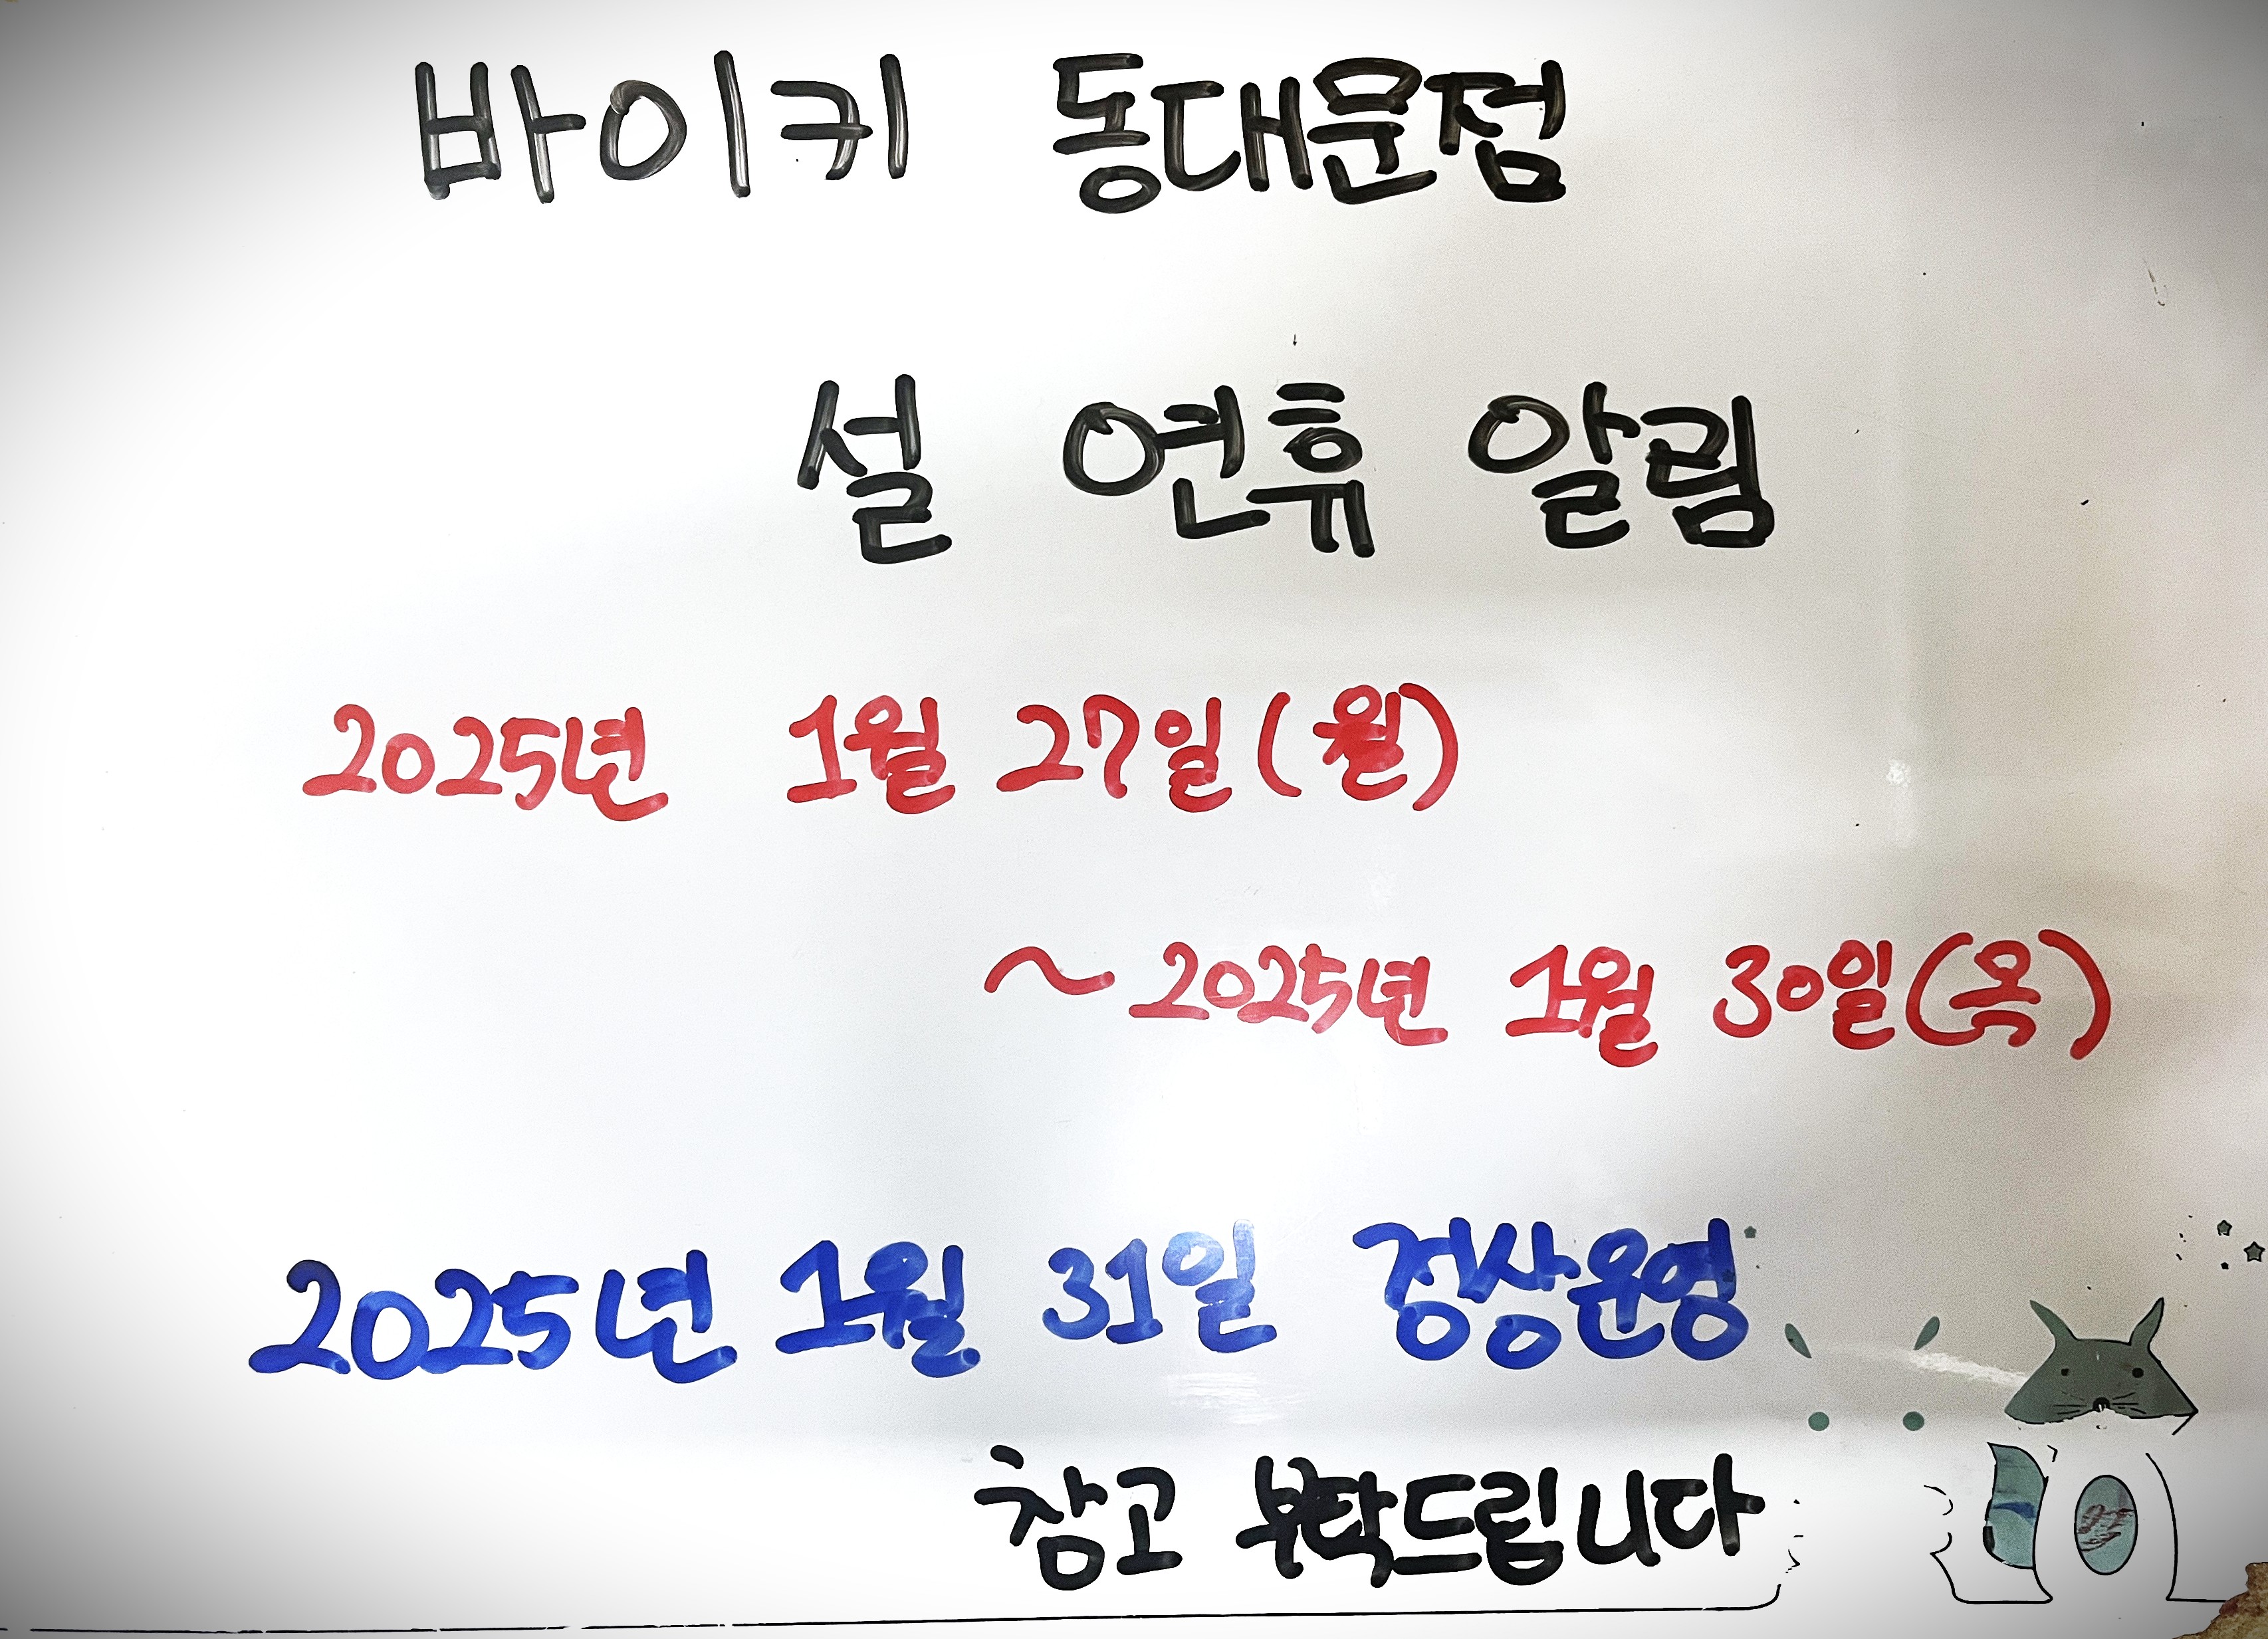 바이키 동대문점
설 연휴 알림
2025년 1월 27일(월)
~2025년 1월 30일(목)
2025년 1월 31일 정상운영
참고 부탁드립니다